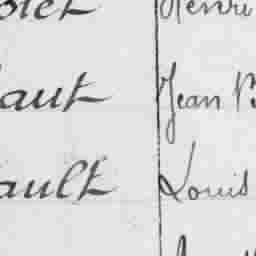 Henri
aut Jean B
ault Louis